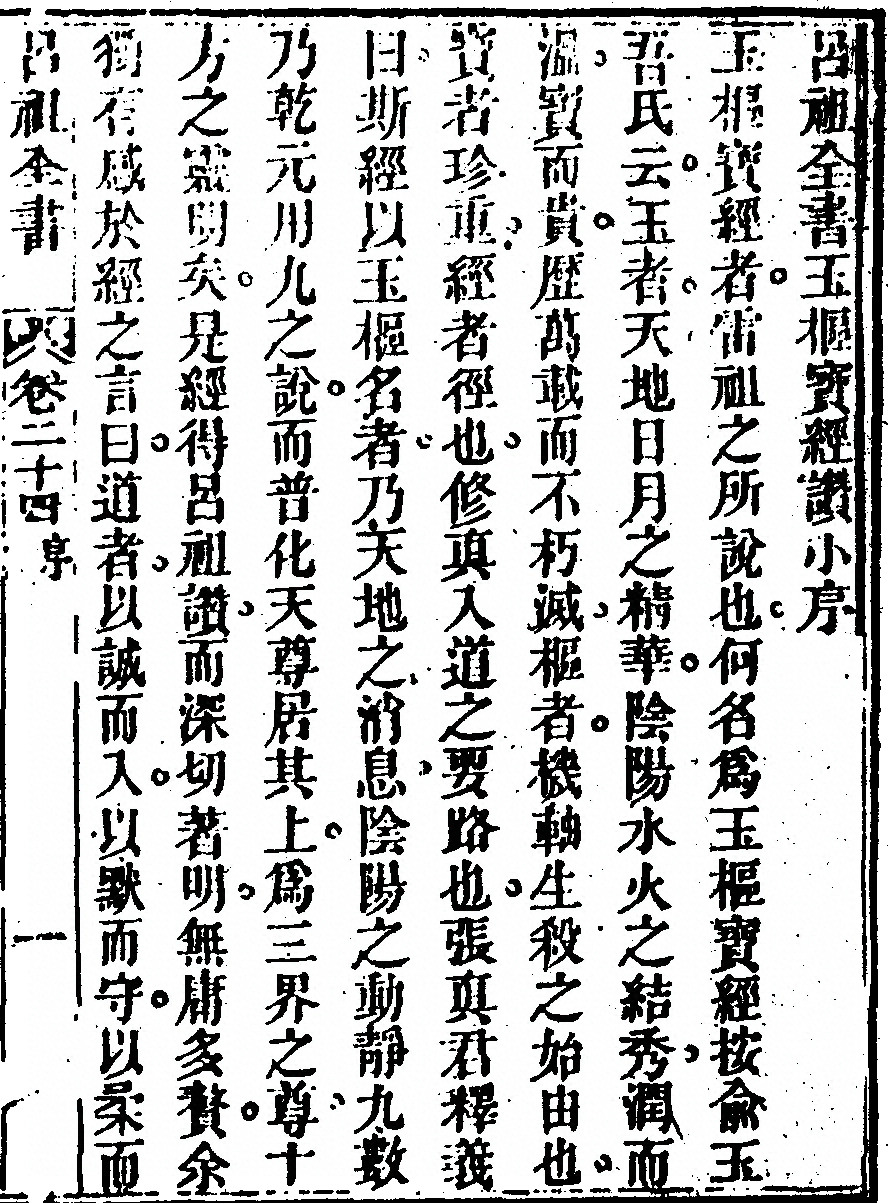 呂祖全書玉樞寶經讚小序
玉樞寶經者。雷祖之所說也。何名爲玉樞寶經按俞玉
吾氏云。玉者。天地日月之精華。陰陽水火之結秀。潤而
溫。寶而貴。歷萬載而不朽滅。樞者。機軸生殺之始由也。
寶者珍重。經者徑也。修眞入道之要路也。張眞君釋義
曰。斯經以玉樞名者。乃天地之消息。陰陽之動靜九數
乃乾元用九之說。而普化天尊居其上。爲三界之尊。十
方之靈明矣。是經得呂祖讚。而深切著明。無庸多贅。余
獨有感於經之言曰。道者。以誠而入。以默而守。以柔而
呂祖全書 卷二十四 序 一